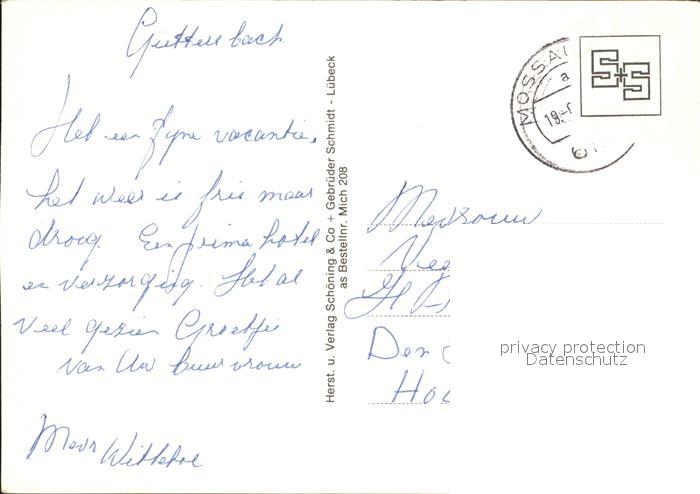 Güttersbach
Het een fijne vacantie.
het weer is fris maar
droog. Een prima hotel
en verzorging. Het al
veel gezien Groetjes
van Uw buurvrouw
Mevr Wittebol
Herst. u. Verlag Schöning & Co + Gebrüder Schmidt - Lübeck
as Bestellnr. Mich 208
MOSSAU
a
19.
61
S+S
Mevrouw
Veg
Den
Hol
privacy protection
Datenschutz